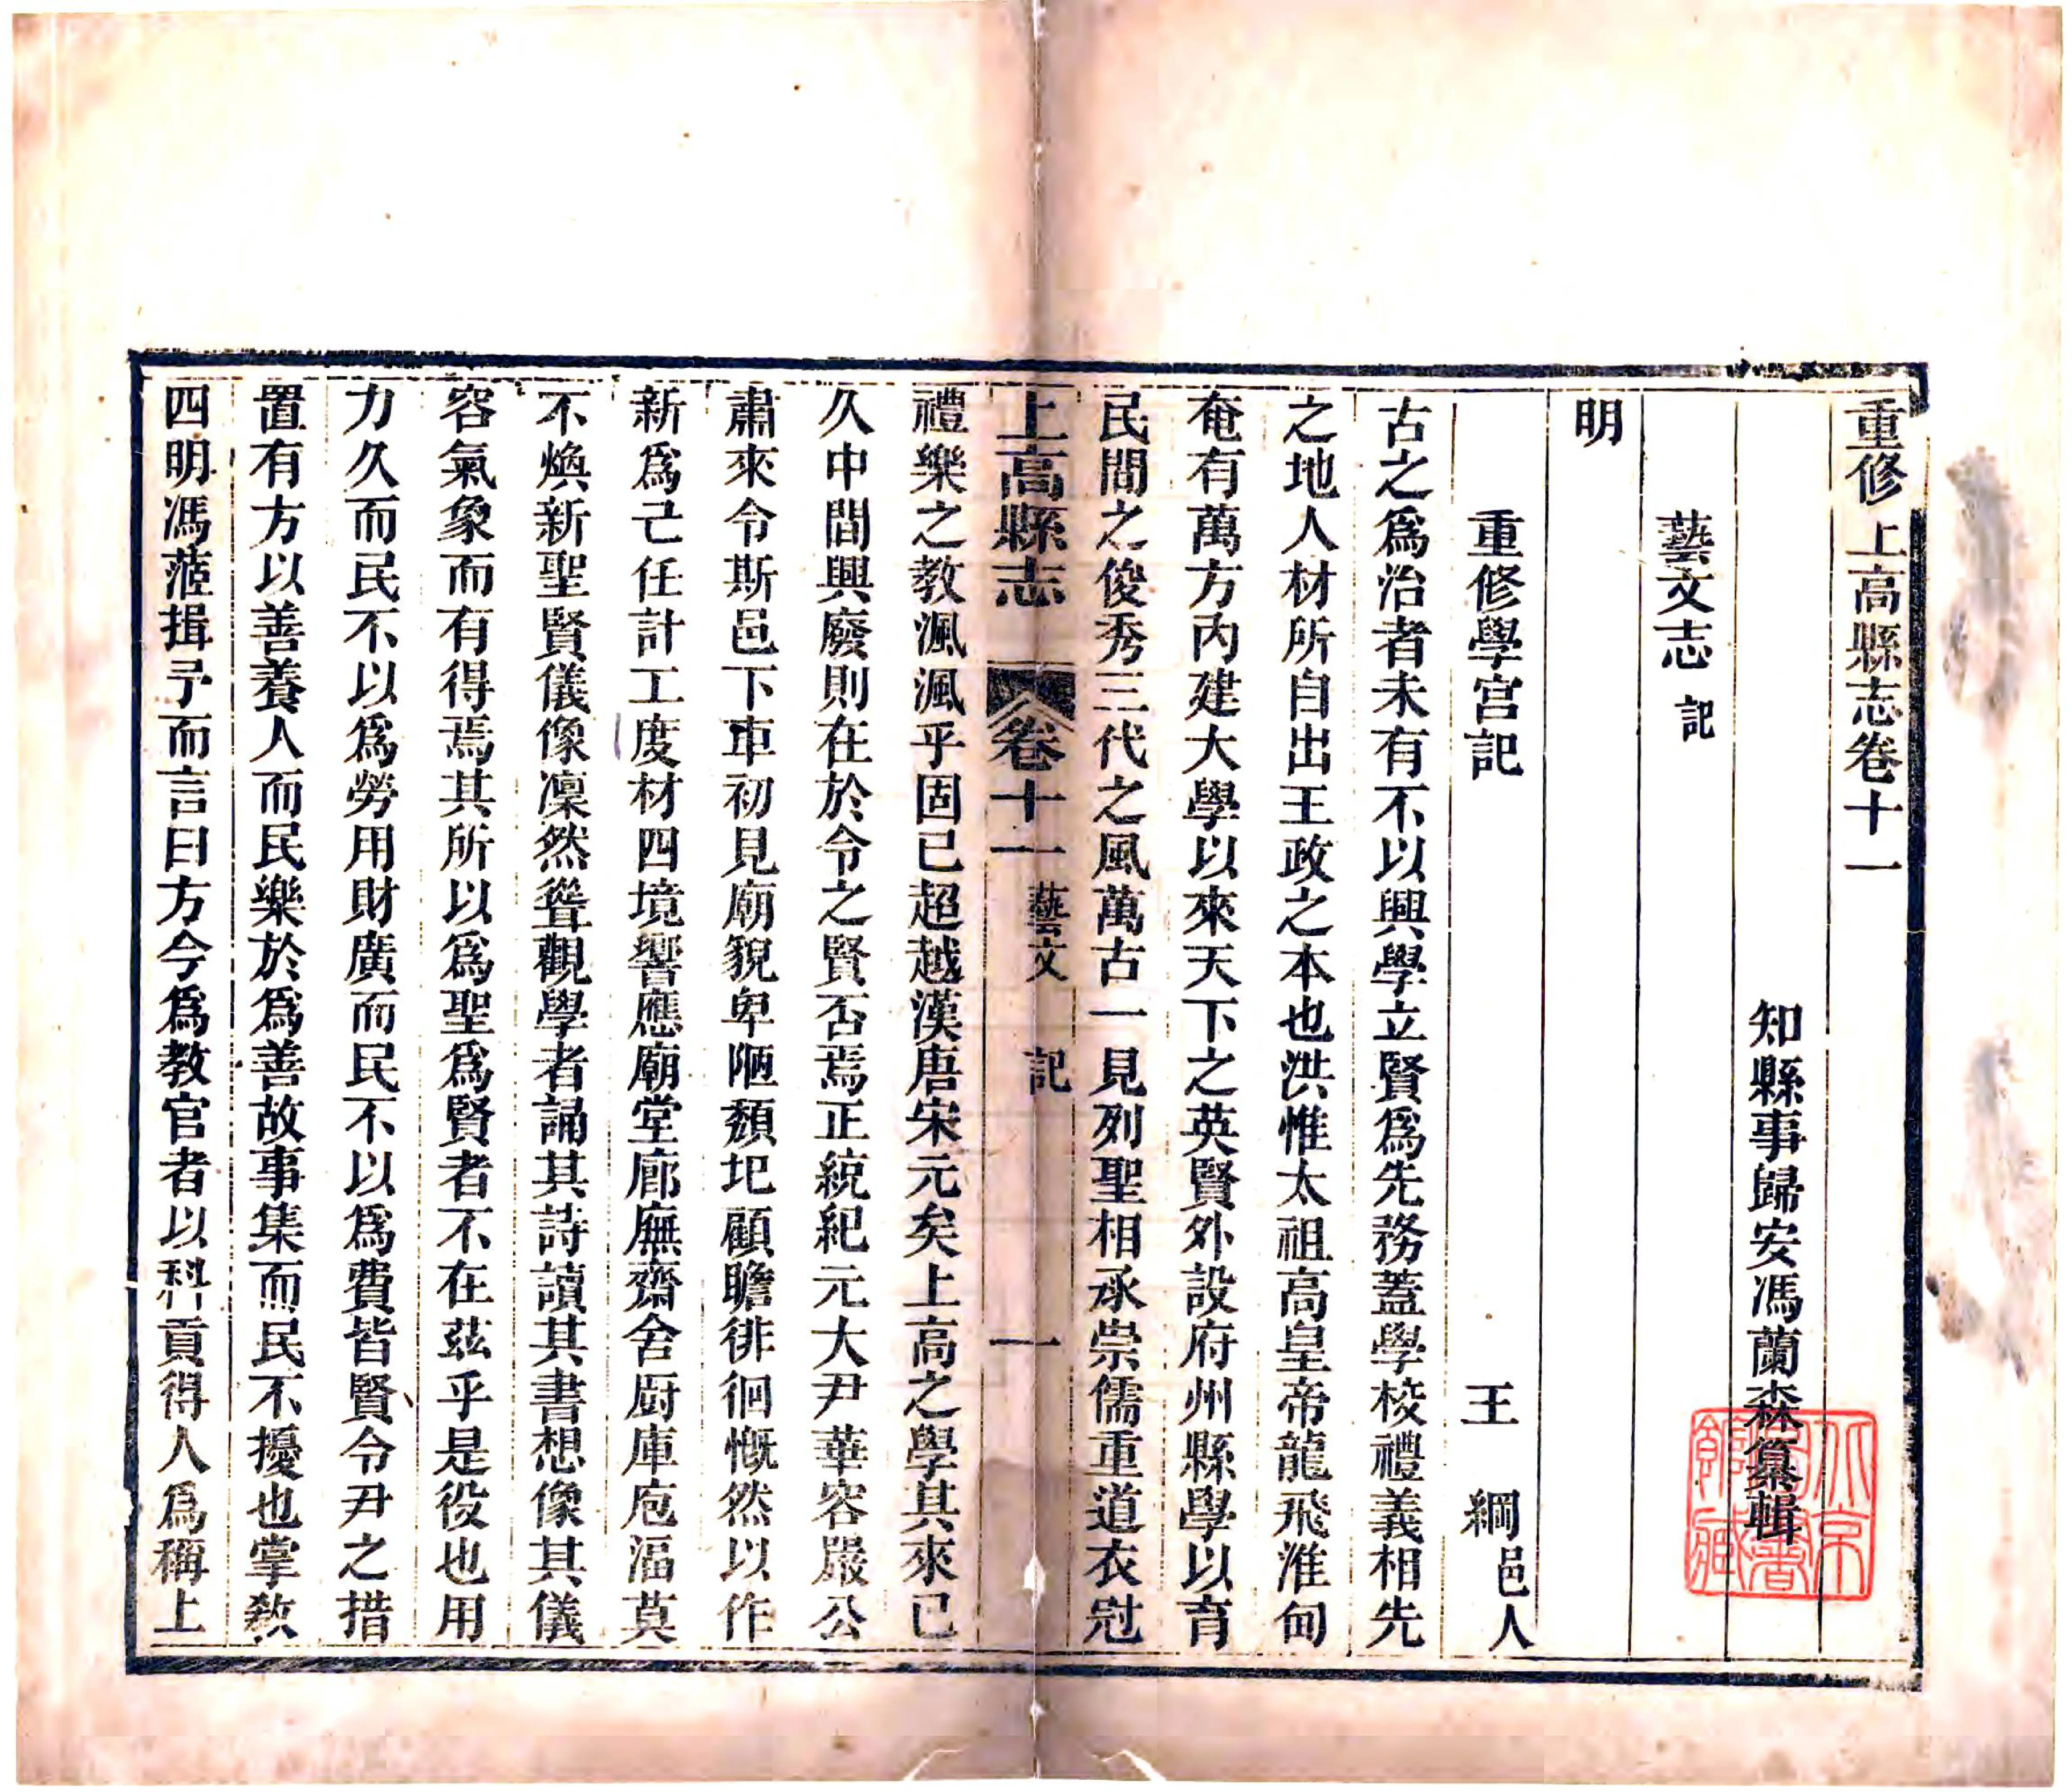 重修上高縣志卷十一
知縣事歸安馮蘭森纂輯
藝文志 記
明
重修學宮記 王 綱 邑人
古之爲治者未有不以興學立賢爲先務蓋學校禮義相先
之地人材所自出王政之本也洪惟太祖高皇帝龍飛淮甸
奄有萬方內建大學以來天下之英賢外設府州縣學以育
民間之俊秀三代之風萬古一見列聖相承崇儒重道衣冠
上高縣志 卷十一 藝文 記 一
禮樂之教渢渢乎固已超越漢唐宋元矣上高之學其來已
久中間興廢則在於令之賢否焉正統紀元大尹華容嚴公
肅來令斯邑下車初見廟貌卑陋頹圮顧瞻徘徊慨然以作
新爲己任計工度材四境響應廟堂廊廡齋舍厨庫庖湢莫
不煥新聖賢儀像凜然聳觀學者誦其詩讀其書想像其儀
容氣象而有得焉其所以爲聖爲賢者不在茲乎是役也用
力久而民不以爲勞用財廣而民不以爲費皆賢令尹之措
置有方以善養人而民樂於爲善故事集而民不擾也掌敎
四明馮蒞揖予而言曰方今爲教官者以科貢得人爲稱上
北京圖書館藏